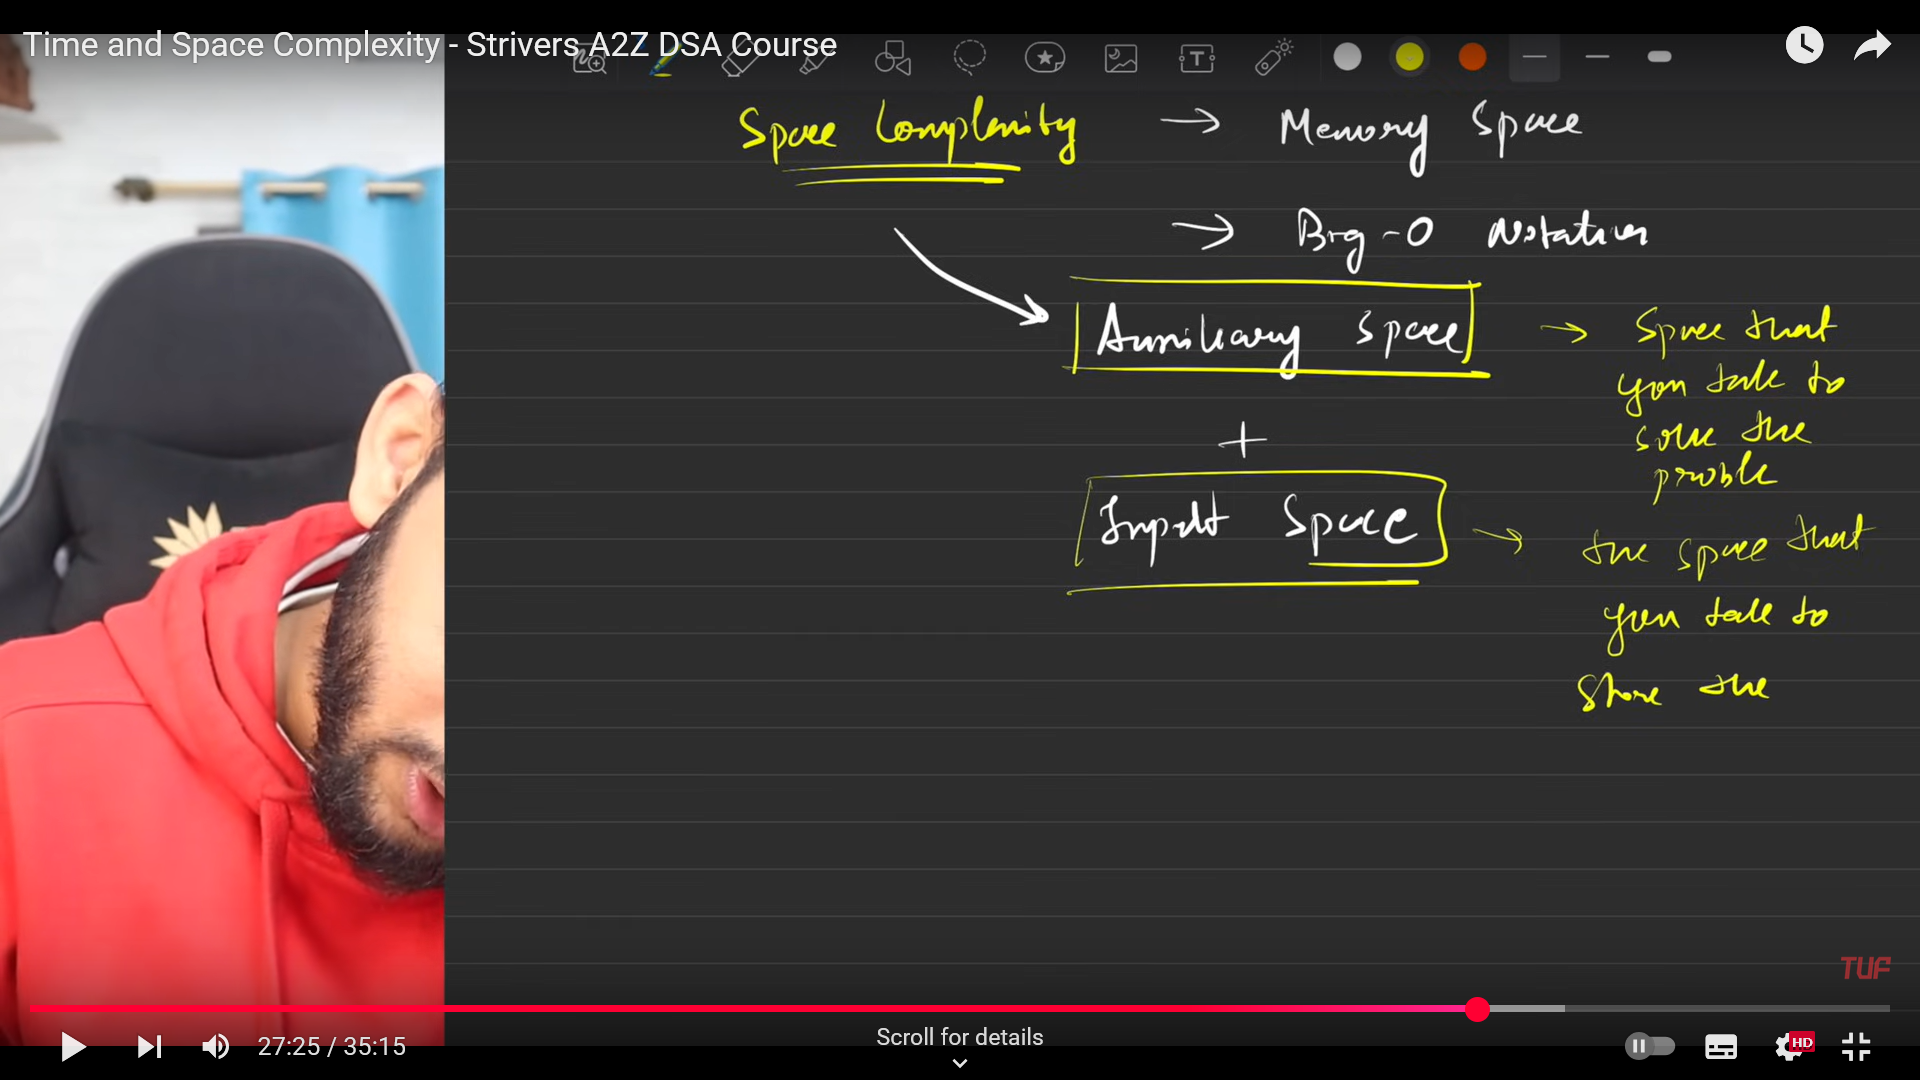 Time and Space Complexity - Strivers A2Z DSA Course
Space Complexity → Memory Space
→ Big-O Notation
Auxiliary Space → Space that
you take to
solve the
proble
+
Input Space → the space that
you take to
store the
TUF
27:25 / 35:15
Scroll for details
HD